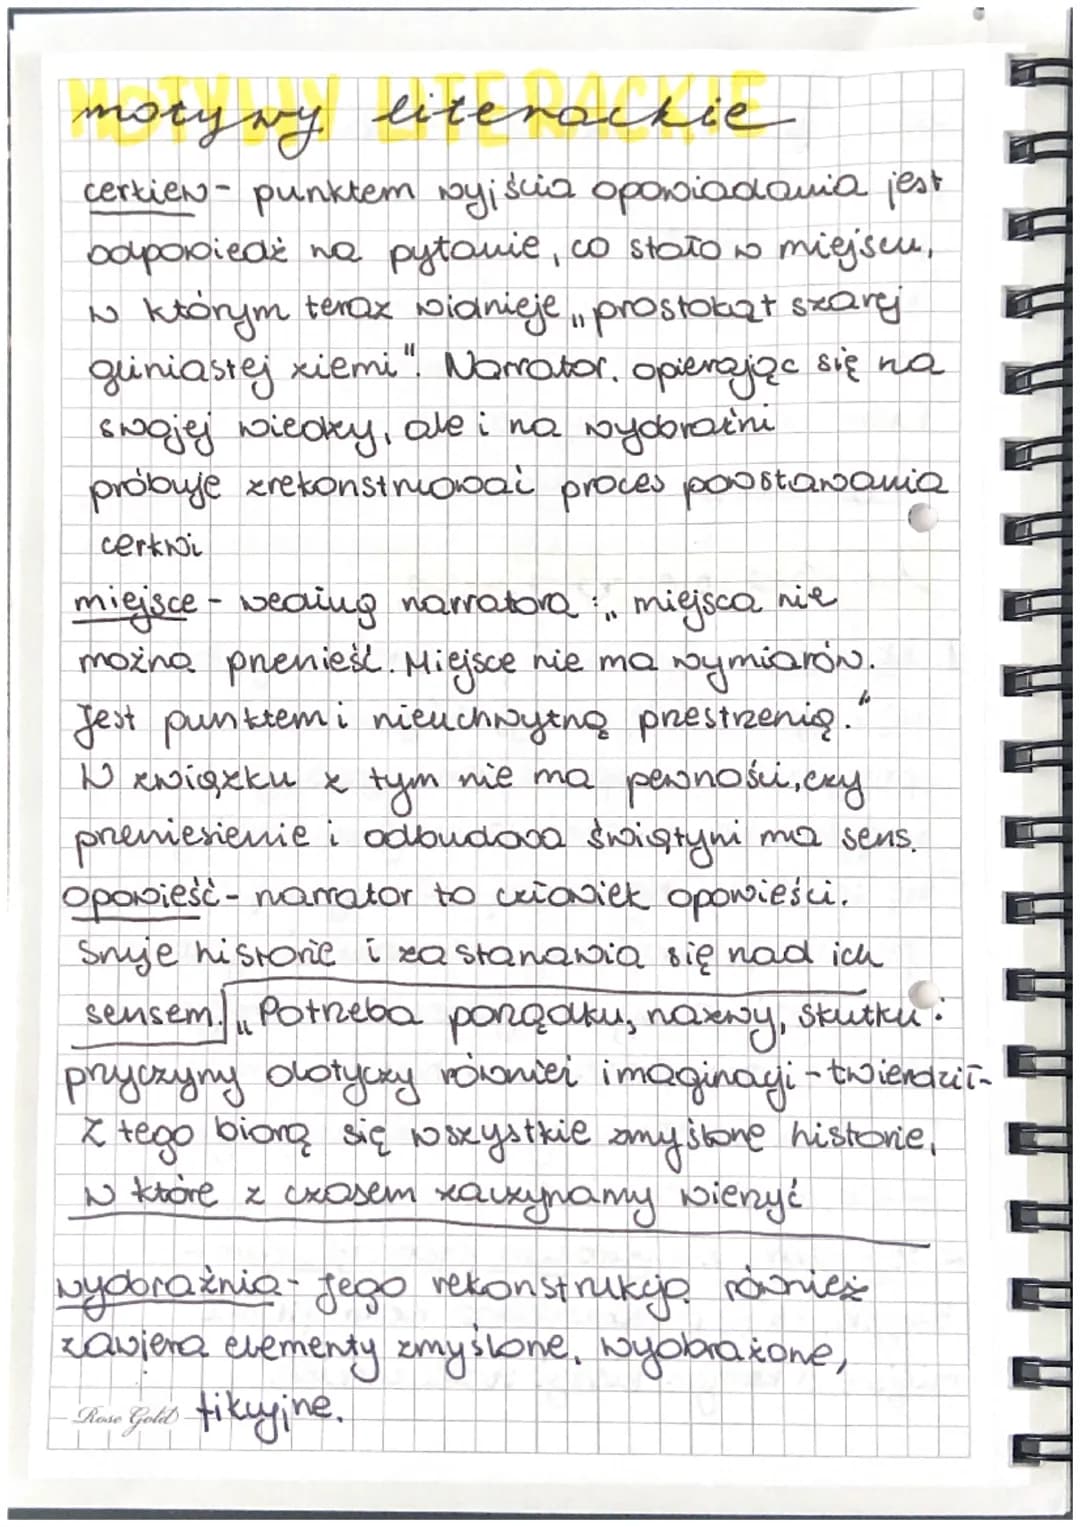 MOTYWY LITERACKIE
motywy literackie
cerkiew - punktem wyjścia opowiadania jest
odpowiedź na pytanie, co stało w miejscu,
w którym teraz widnieje „prostokąt szarej
gliniastej ziemi". Narrator, opierając się na
swojej wiedzy, ale i na wyobraźni
próbuje zrekonstruować proces powstawania
cerkwi
miejsce - według narratora : „miejsca nie
można przenieść. Miejsce nie ma wymiarów.
Jest punktem i nieuchwytną przestrzenią."
W związku z tym nie ma pewności, czy
przeniesienie i odbudowa świątyni ma sens.
opowieść - narrator to człowiek opowieści.
Snuje historie i zastanawia się nad ich
sensem. „Potrzeba porządku, nazwy, skutku i
przyczyny dotyczy również imaginacji - twierdził -
Z tego biorą się wszystkie zmyślone historie,
w które z czasem zaczynamy wierzyć
wyobraźnia - Jego rekonstrukcja również
zawiera elementy zmyślone, wyobrażone,
fikcyjne.
Rose Gold